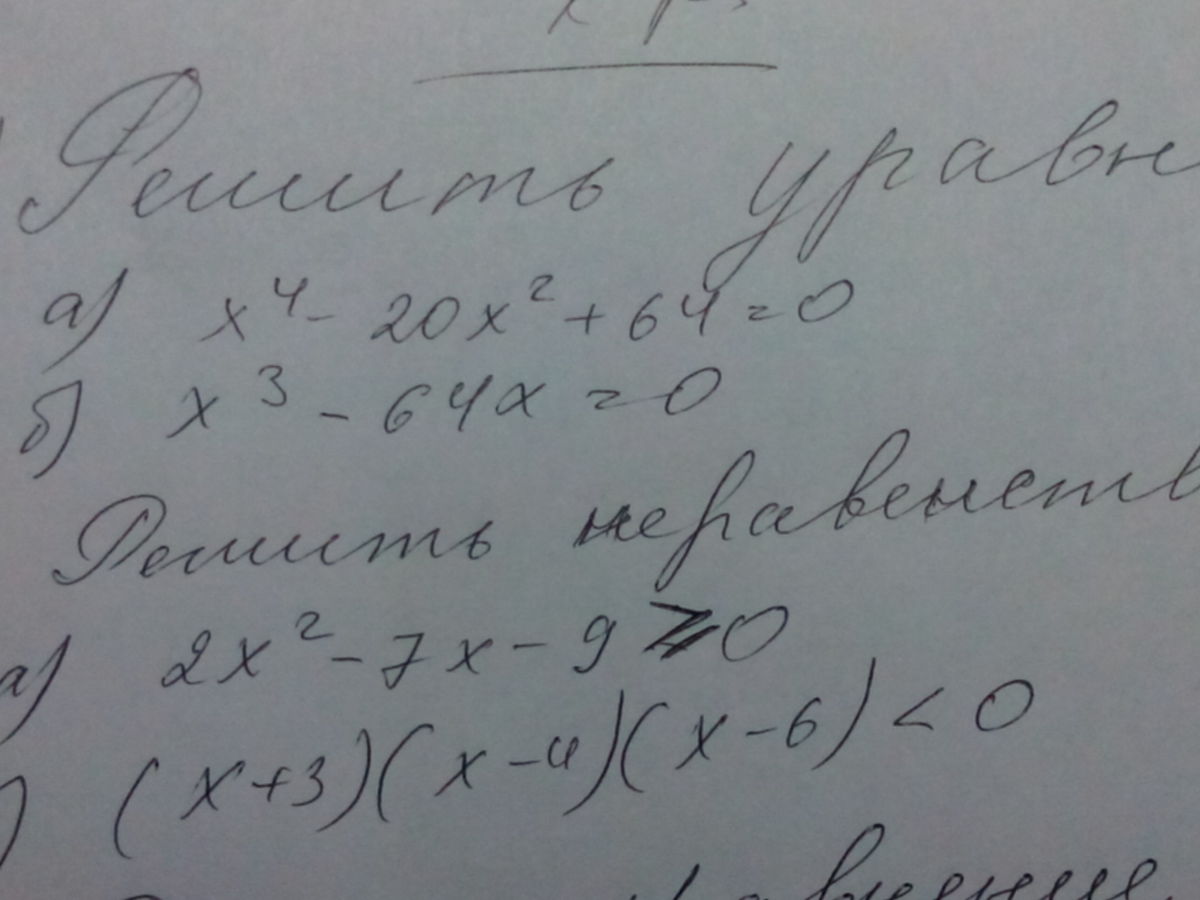 Решить уравн
а) x⁴ - 20x² + 64 = 0
б) x³ - 64x = 0
Решить неравенств
а) 2x² - 7x - 9 ⩾ 0
) (x+3)(x-4)(x-6) < 0